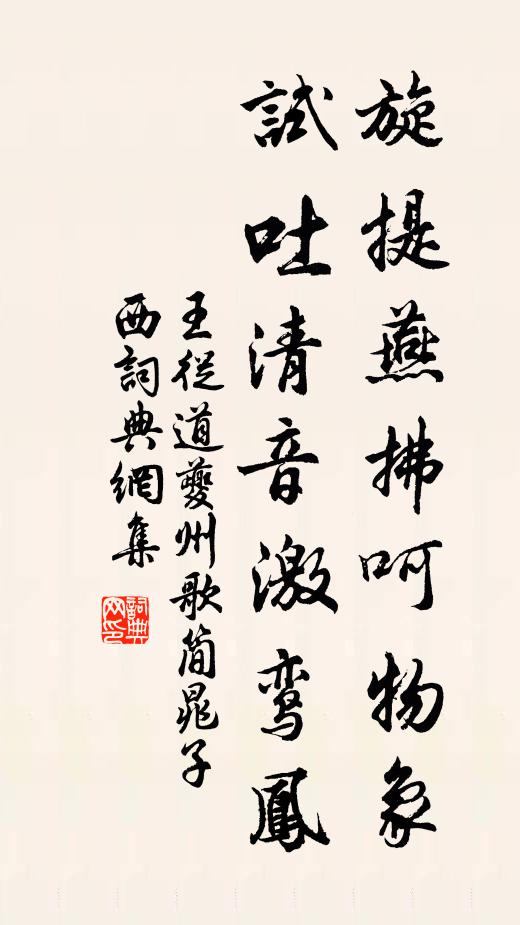 旋提燕拂呵物象
試吐清音激鸾鳳
王從道夔州歌简晁子
西詞典網集
詞典网印